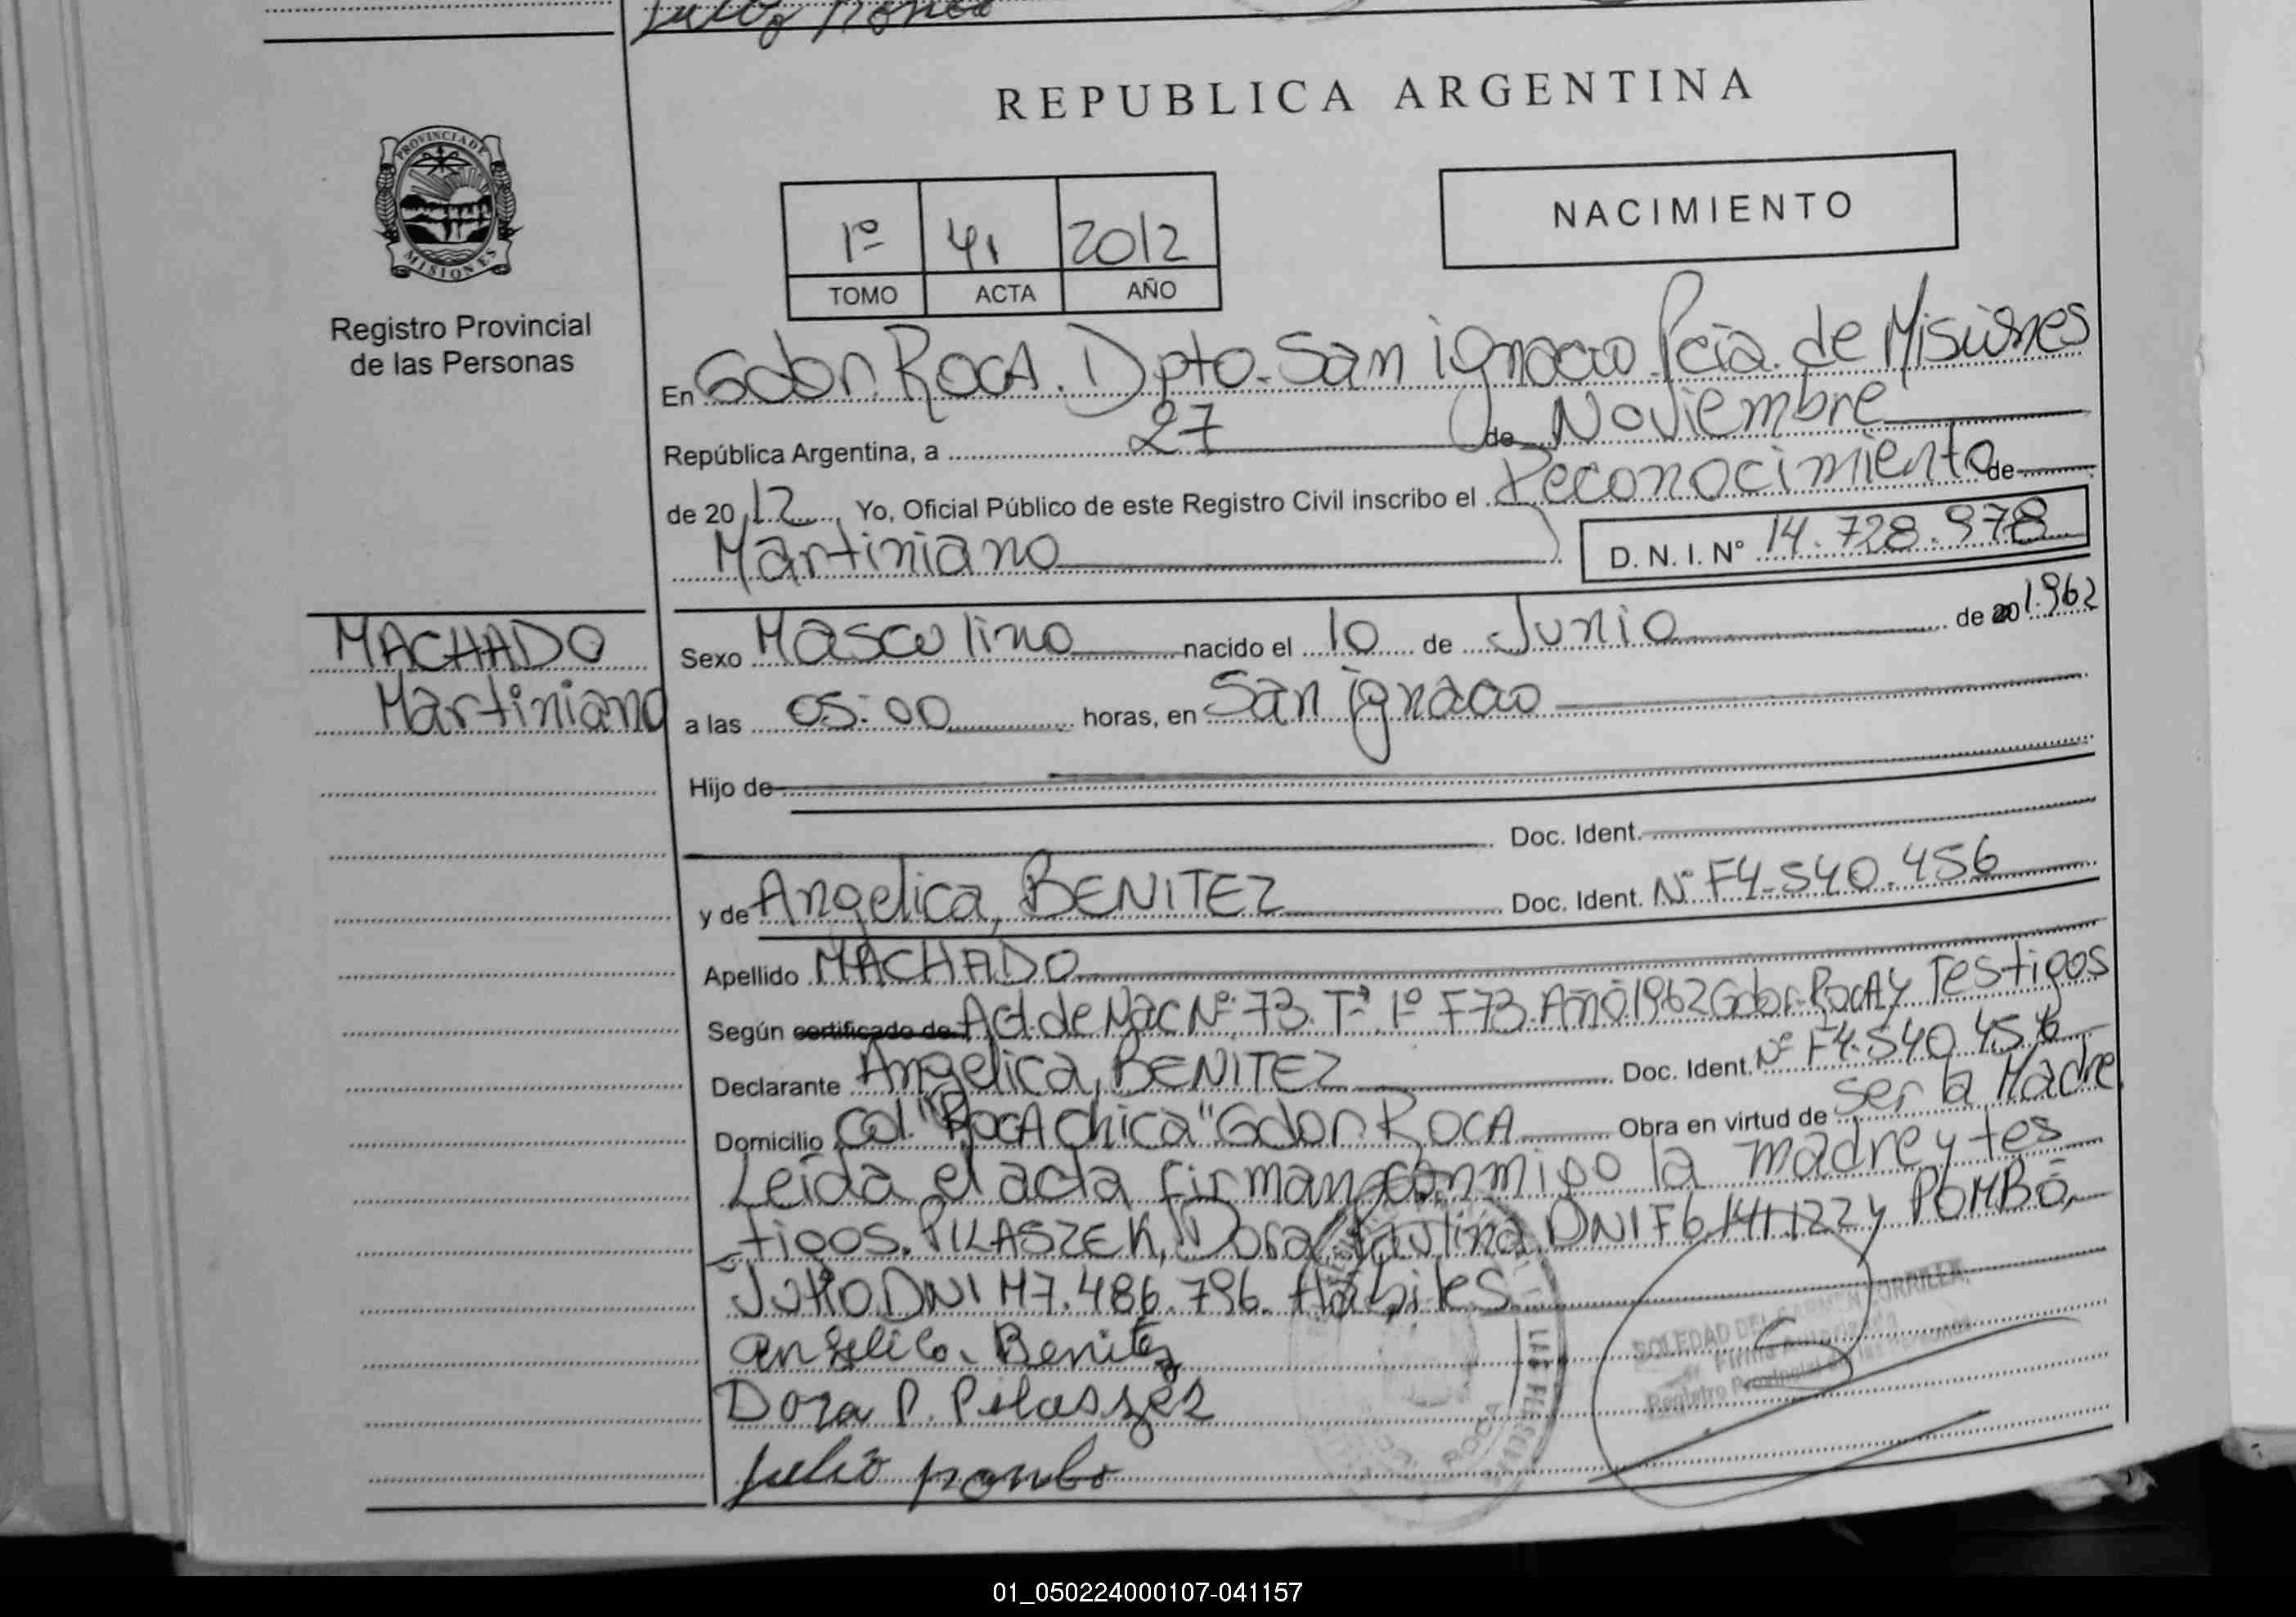 REPUBLICA ARGENTINA
PROVINCIA DE
MISIONES
Registro Provincial
de las Personas
1º 41 2012
TOMO ACTA AÑO
NACIMIENTO
En Gdor. ROCA. Dpto. San ignacio Pcia. de Misiones
República Argentina, a 27 de Noviembre
de 2012 Yo, Oficial Público de este Registro Civil inscribo el Reconocimiento de
Martiniano D. N. I. Nº 14.728.978
MACHADO
Martiniano
Sexo Masculino nacido el 10 de Junio de 20 1962
a las 05:00 horas, en San ignacio
Hijo de
Doc. Ident.
y de Angelica, BENITEZ Doc. Ident. Nº F4.540.456
Apellido MACHADO
Según certificado de Act. de Nac Nº 73. Tº 1º F73. Año 1962 Gdor. ROCA y Testigos
Declarante Angelica, BENITEZ Doc. Ident. Nº F4.540.456
Domicilio Col. "ROCA Chica" Gdor. ROCA Obra en virtud de ser la Madre
Leida el acta firman conmigo la madre y tes
tigos. PILASZEK, Dora Paulina DNI F6.141.122 y POMBO,
Julio DNI M7.486.796. Habiles
Angelica. Benitez
Dora P. Pilaszek
Julio pombo
SOLEDAD DEL CARMEN
Firma Autorizada
Registro Provincial de las Personas
LAS PERSONAS
ROCA
01_050224000107-041157